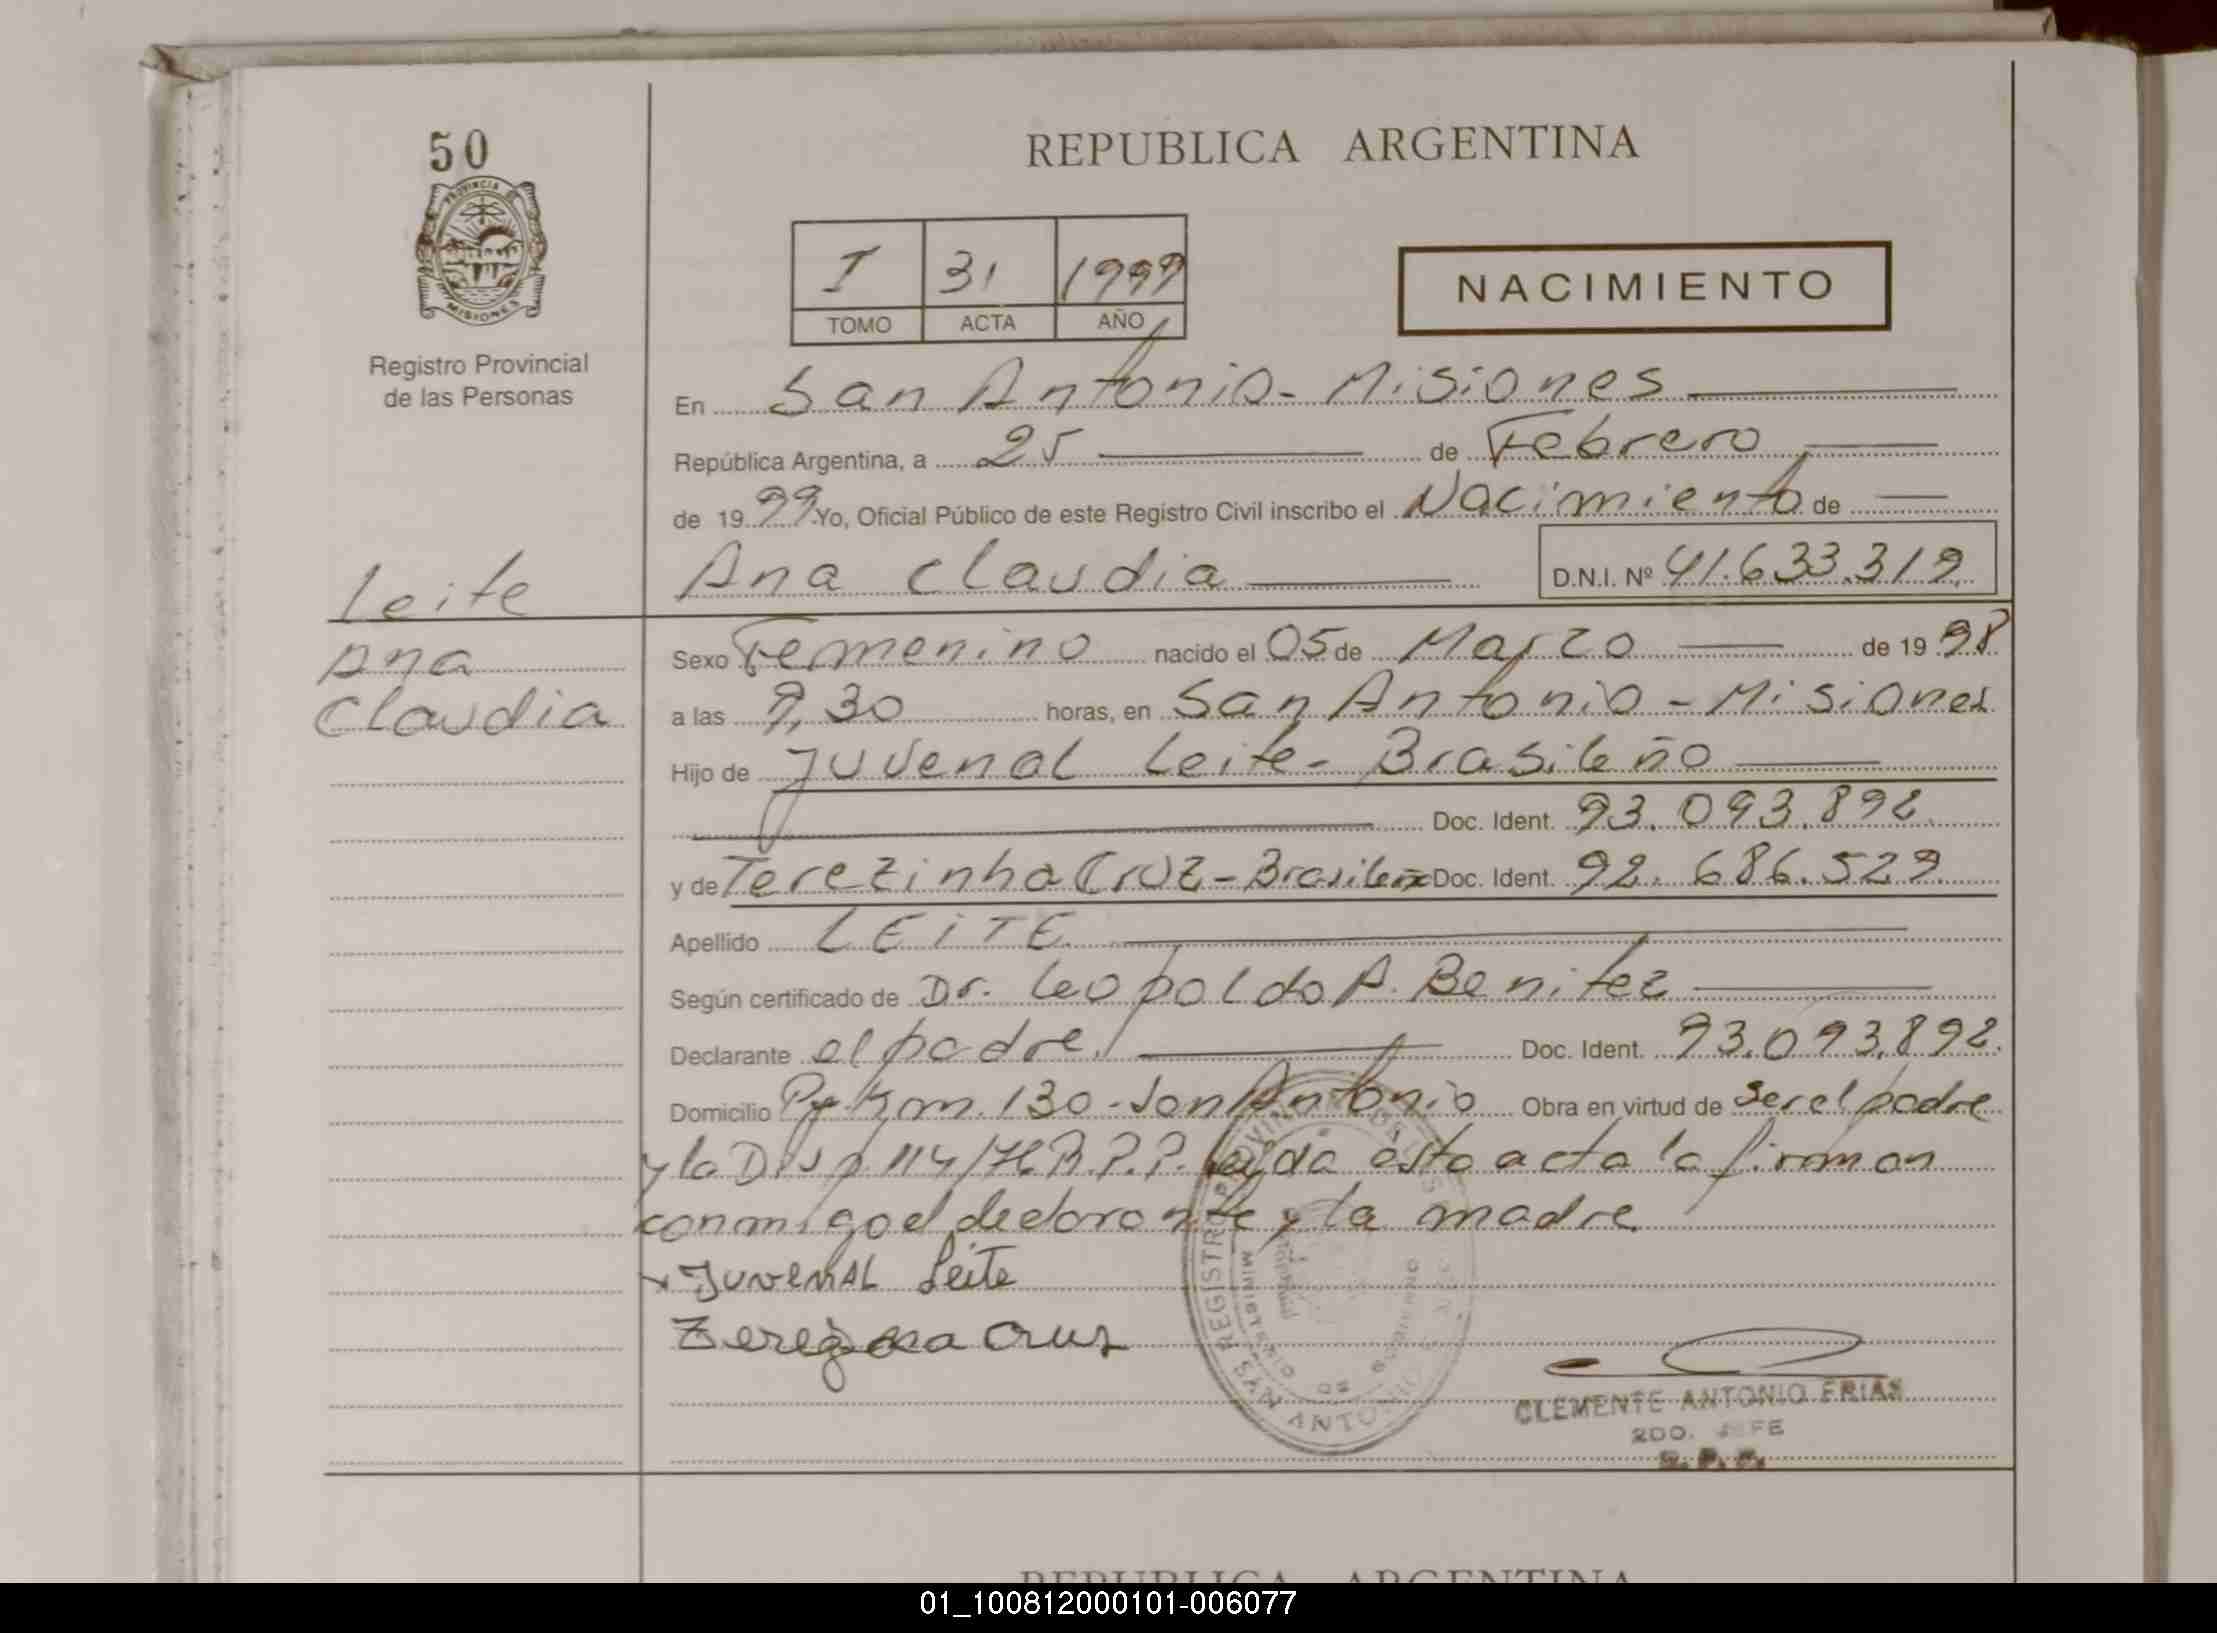 50
PROVINCIA DE
MISIONES
Registro Provincial
de las Personas
REPUBLICA ARGENTINA
I 31 1999
TOMO ACTA AÑO
NACIMIENTO
En San Antonio - Misiones
República Argentina, a 25 de Febrero
de 19 99 Yo, Oficial Público de este Registro Civil inscribo el Nacimiento de
Ana Claudia D.N.I. Nº 41.633.319
Leite
Ana
Claudia
Sexo Femenino nacido el 05 de Marzo de 19 98
a las 9,30 horas, en San Antonio - Misiones
Hijo de Juvenal Leite - Brasileño
Doc. Ident. 93.093.892
y de Terezinha Cruz - Brasileña Doc. Ident. 92.686.529
Apellido LEITE
Según certificado de Dr. Leopoldo A. Benitez
Declarante el padre Doc. Ident. 93.093.892.
Domicilio Km. 130 - San Antonio Obra en virtud de ser el padre
y la Disp. 114/76 R.P.P. Leida esta acta la firman
conmigo el declarante y la madre.
Juvenal Leite
Cruz
SAN ANTONIO
REGISTRO
MINISTERIO DE GOBIERNO
CLEMENTE ANTONIO FRIAS
2DO. JEFE
REPUBLICA ARGENTINA
01_100812000101-006077